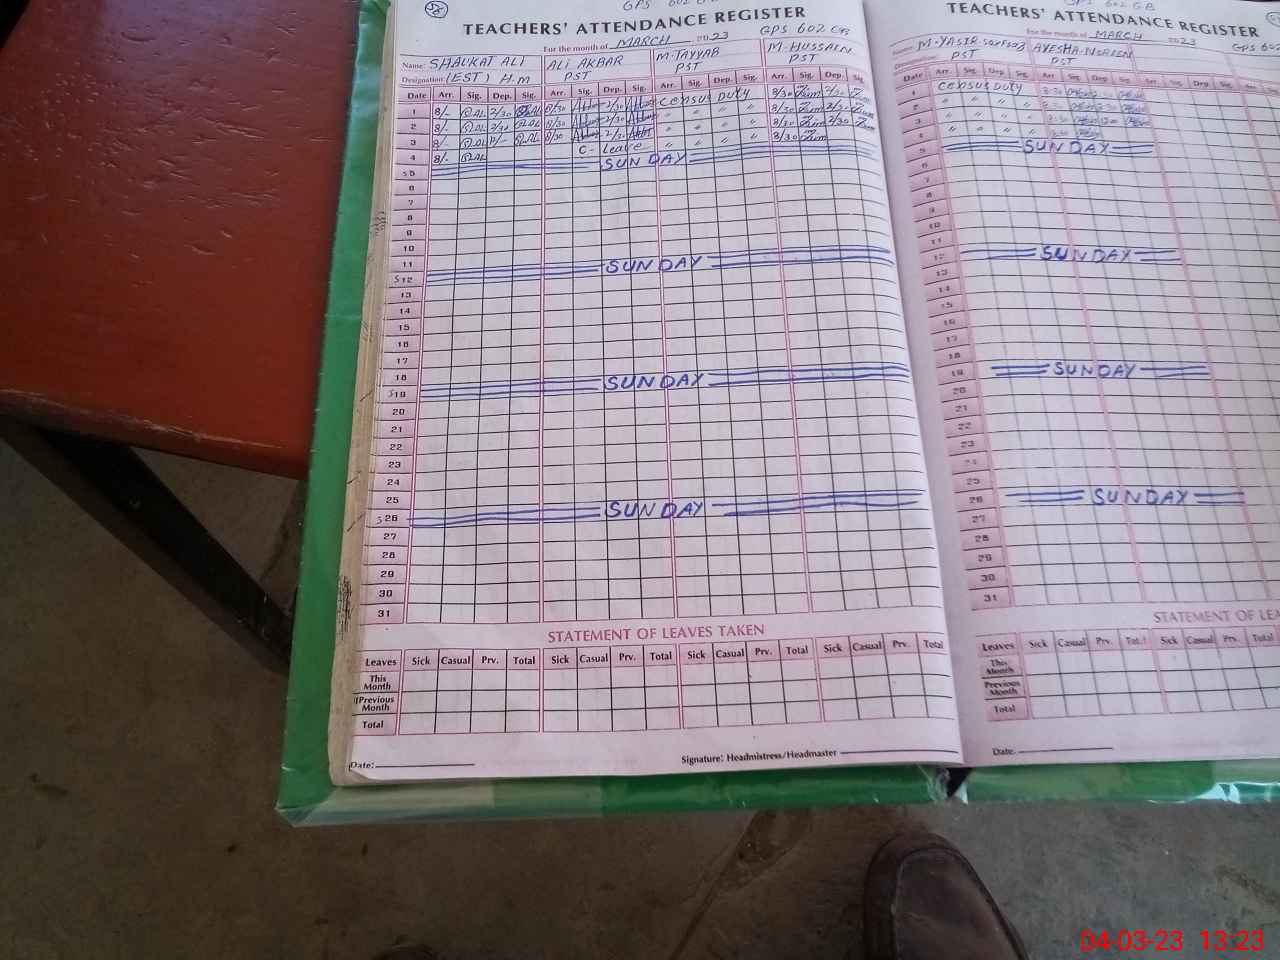 GPS 602 GB
TEACHERS' ATTENDANCE REGISTER
For the month of MARCH 2023 GPS 602 GB
Name: SHAUKAT ALI ALI AKBAR M. TAYYAB M. HUSSAIN
Designation: (EST) H.M PST PST PST
Date Arr. Sig. Dep. Sig. Arr. Sig. Dep. Sig. Arr. Sig. Dep. Sig. Arr. Sig. Dep. Sig.
1 8/- 2/30 8/30 2/30 Census Duty 8/30 2/30
2 8/- 2/30 8/30 2/30 " " " " 8/30 2/30
3 8/- 8/30 2/30 " " " " 8/30 2/30
4 8/- C-Leave " " " " 8/30
S 5 SUNDAY
6
7
8
9
10
11
S 12 SUNDAY
13
14
15
16
17
18
S 19 SUNDAY
20
21
22
23
24
25
S 26 SUNDAY
27
28
29
30
31
STATEMENT OF LEAVES TAKEN
Leaves Sick Casual Prv. Total Sick Casual Prv. Total Sick Casual Prv. Total Sick Casual Prv. Total
This Month
Previous Month
Total
Date: Signature: Headmistress/Headmaster
602 GB
TEACHERS' ATTENDANCE REGISTER
For the month of MARCH 2023 GPS 602
Name: M. YASIR AYESHA NOREEN
Designation: PST PST
Date Arr. Sig. Dep. Sig. Arr. Sig. Dep. Sig. Arr. Sig. Dep. Sig.
1 Census Duty 8:30
2 " " " "
3 " " " "
4 " " " "
5 SUNDAY
6
7
8
9
10
11
12 SUNDAY
13
14
15
16
17
18
19 SUNDAY
20
21
22
23
24
25
26 SUNDAY
27
28
29
30
31
STATEMENT OF
Leaves Sick Casual Prv. Total Sick Casual Prv. Total
This Month
Previous Month
Total
Date.
04-03-23 13:23